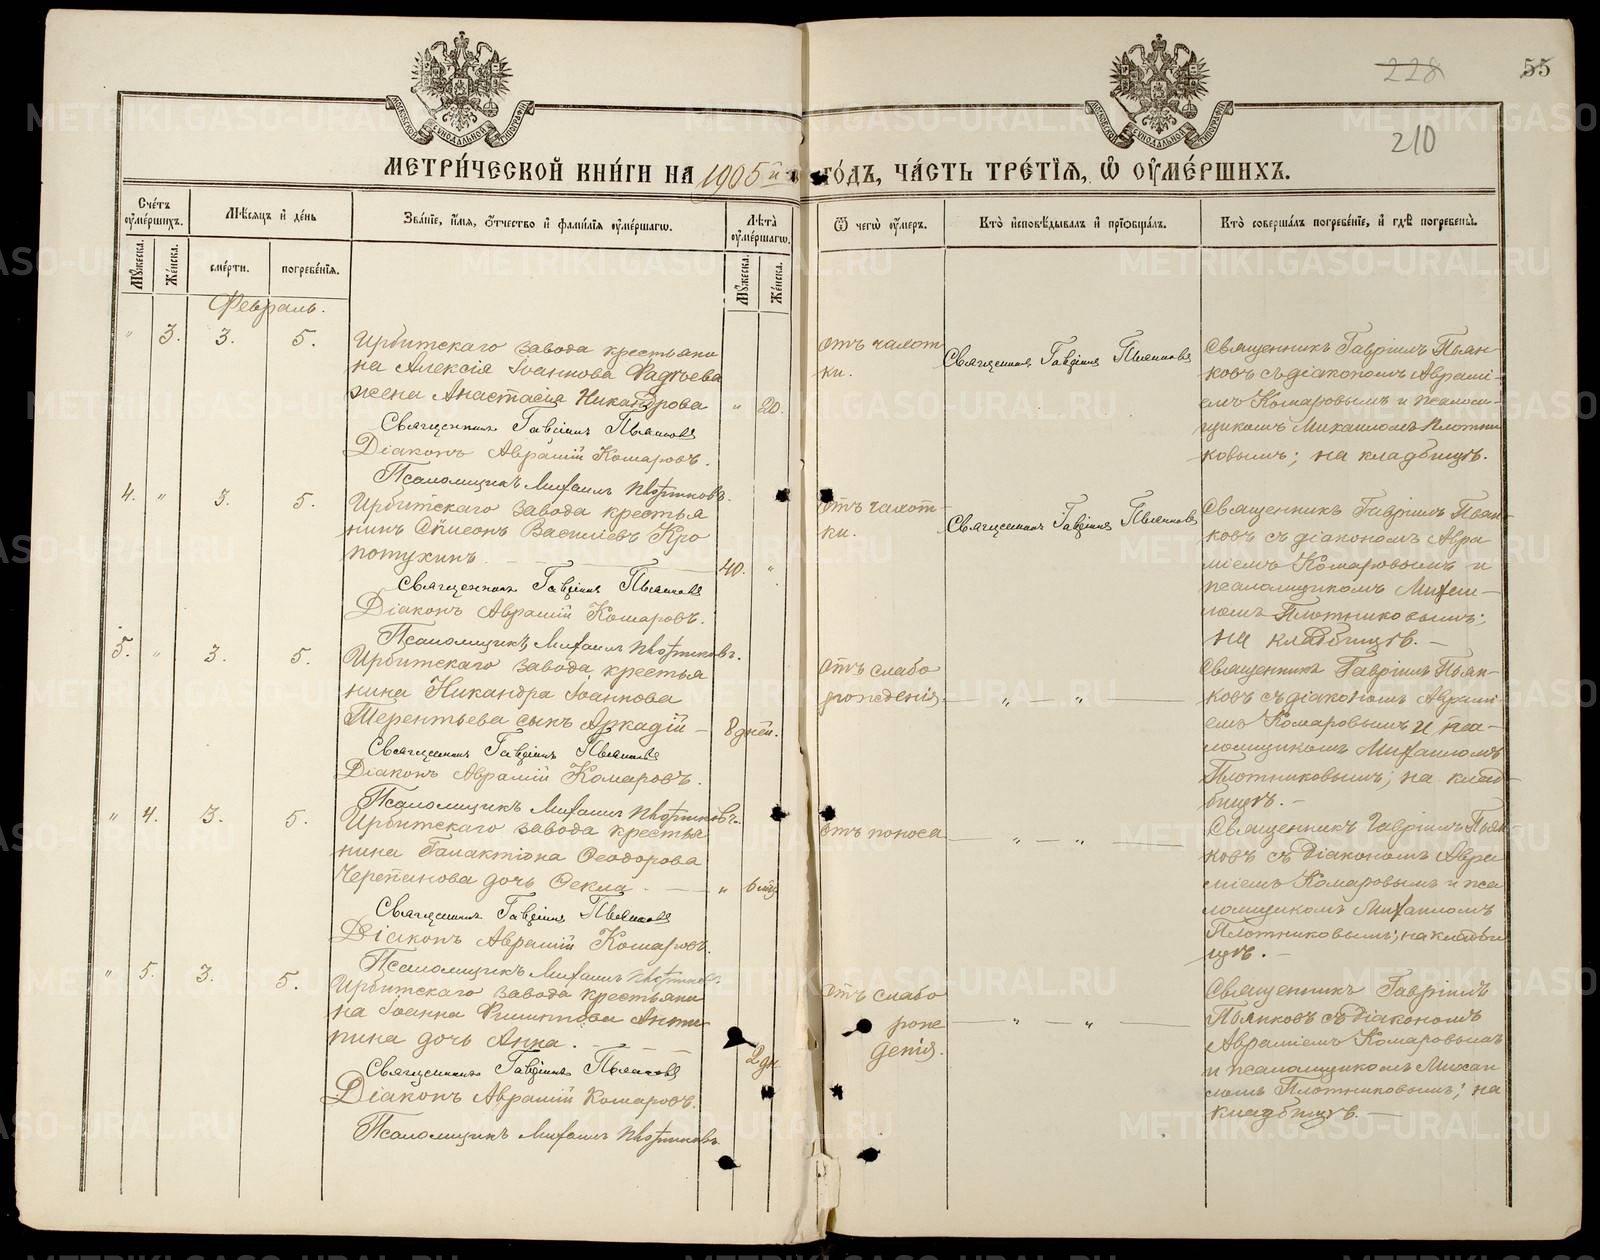 228
55
210
МОСКОВСКОЙ СѴНОДАЛЬНОЙ ТИПОГРАФІИ
МОСКОВСКОЙ СѴНОДАЛЬНОЙ ТИПОГРАФІИ
МЕТРИ́ЧЕСКОЙ КНИ́ГИ НА 1905й ГО́ДЪ, ЧА́СТЬ ТРЕ́ТІѦ, Ѡ҆ ОУ҆МЕ́РШИХЪ.
Сче́тъ оу҆ме́ршихъ.
Мꙋ́жеска.
Же́нска.
Мѣ́сѧцъ и҆ де́нь
сме́рти.
погребе́нїѧ.
Зва́нїе, и҆́мѧ, ѻ҆́тчество и҆ фами́лїѧ оу҆ме́ршагѡ.
Лѣ́та оу҆ме́ршагѡ.
Мꙋ́жеска.
Же́нска.
Ѿ чегѡ̀ оу҆́меръ.
Кто̀ и҆сповѣ́дывалъ и҆ прїѡбща́лъ.
Кто̀ соверша́лъ погребе́нїе, и҆ гдѣ̀ погребены̀.
Февраль.
" 3. 3. 5.
Ирбитскаго завода крестьяни
на Алексія Іоаннова Фадѣева
жена Анастасія Никандрова
" 20.
Священникъ Гавріилъ Пьянковъ
Діаконъ Аврамій Комаровъ.
Псаломщикъ Михаилъ Плотниковъ.
отъ чахот
ки.
Священникъ Гавріилъ Пьянковъ
Священникъ Гавріилъ Пьян-
ковъ съ діакономъ Аврамі-
емъ Комаровымъ и псалом-
щикомъ Михаиломъ Плотни
ковымъ; на кладбищѣ.
4. " 3. 5.
Ирбитскаго завода крестья
нинъ Симеонъ Василіевъ Кро
потухинъ
40. "
Священникъ Гавріилъ Пьянковъ
Діаконъ Аврамій Комаровъ.
Псаломщикъ Михаилъ Плотниковъ.
отъ чахот-
ки.
Священникъ Гавріилъ Пьянковъ
Священникъ Гавріилъ Пьян-
ковъ съ діакономъ Авра
міемъ Комаровымъ и
псаломщикомъ Михаи-
ломъ Плотниковымъ;
на кладбищѣ. —
5. " 3. 5.
Ирбитскаго завода, крестья
нина Никандра Іоаннова
Терентьева сынъ Аркадій —
8 дней.
Священникъ Гавріилъ Пьянковъ
Діаконъ Аврамій Комаровъ.
Псаломщикъ Михаилъ Плотниковъ.
отъ слабо
рожденія.
— " — " —
Священникъ Гавріилъ Пьян-
ковъ съ діакономъ Аврамі-
емъ Комаровымъ и пса-
ломщикомъ Михаиломъ
Плотниковымъ; на клад-
бищѣ. —
" 4. 3. 5.
Ирбитскаго завода крестья
нина Галактіона Ѳеодорова
Черепанова дочь Ѳекла. —
" 6 мц
Священникъ Гавріилъ Пьянковъ
Діаконъ Аврамій Комаровъ.
Псаломщикъ Михаилъ Плотниковъ.
отъ поноса
— " — " —
Священникъ Гавріилъ Пьян
ковъ съ діакономъ Авра
міемъ Комаровымъ и пса
ломщикомъ Михаиломъ
Плотниковымъ; на кладби
щѣ. —
" 5. 3. 5.
Ирбитскаго завода крестьяни
на Іоанна Филиппова Анти-
пина дочь Анна. —
2 дн
Священникъ Гавріилъ Пьянковъ
Діаконъ Аврамій Комаровъ.
Псаломщикъ Михаилъ Плотниковъ
отъ слабо
рож
денія.
— " — " —
Священникъ Гавріилъ
Пьянковъ съ діакономъ
Авраміемъ Комаровымъ
и псаломщикомъ Михаи
ломъ Плотниковымъ; на
кладбищѣ. —
METRIKI.GASO-URAL.RU